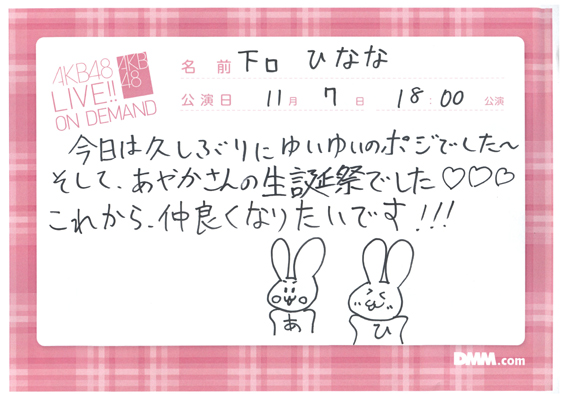 AKB48
LIVE!!
ON DEMAND
AKB
48
名 前 下口 ひなな
公演日 11月 7日 18:00 公演
今日は久しぶりにゆいゆいのポジでした〜
そして、あやかさんの生誕祭でした♡♡♡
これから、仲良くなりたいです!!!
あ ひ
DMM.com